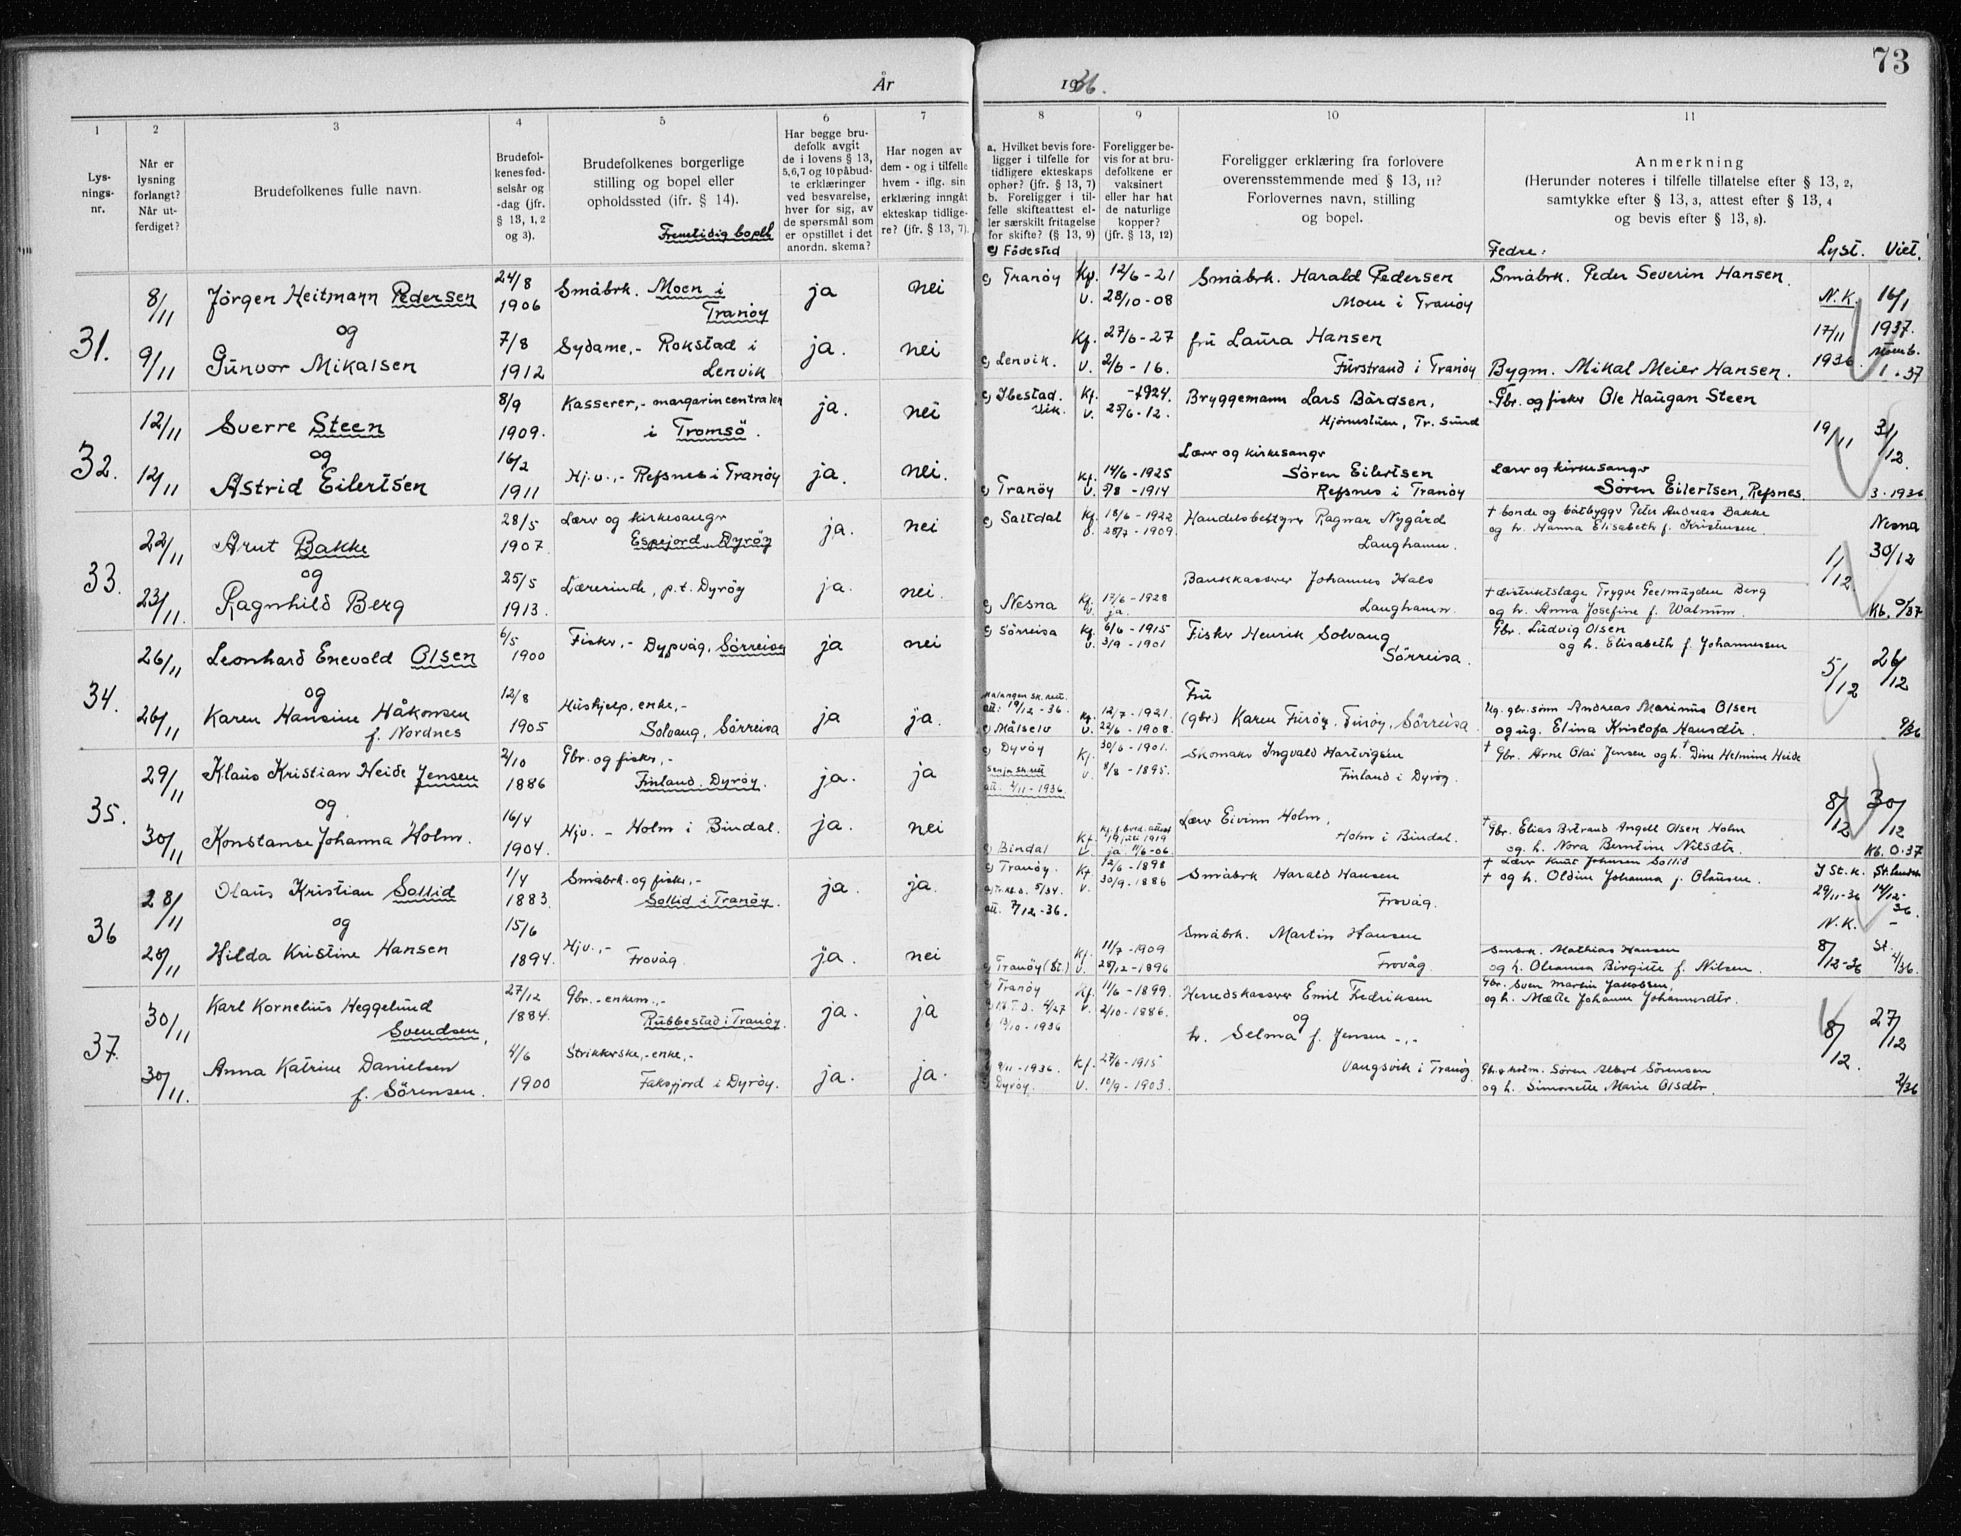 73
År 1936.
1 2 3 4 5 6 7 8 9 10 11
Lysningsnr.
Når er lysning forlangt? Når utferdiget?
Brudefolkenes fulle navn.
Brudefolkenes fødselsår og -dag (jfr. § 13, 1, 2 og 3).
Brudefolkenes borgerlige stilling og bopel eller opholdssted (ifr. § 14).
Fremtidig bopel
Har begge brudefolk avgit de i lovens § 13, 5,6,7 og 10 påbudte erklæringer ved besvarelse, hver for sig, av de spørsmål som er opstillet i det anordn. skema?
Har nogen av dem - og i tilfelle hvem - iflg. sin erklæring inngåt ekteskap tidligere? (jfr. § 13, 7).
a. Hvilket bevis foreligger i tilfelle for tidligere ekteskaps ophør? (jfr. § 13, 7)
b. Foreligger i tilfelle skifteattest eller særskilt fritagelse for skifte? (§ 13, 9)
c) Födested
Foreligger bevis for at brudefolkene er vaksinert eller har hat de naturlige kopper? (jfr. § 13, 12)
Foreligger erklæring fra forlovere overensstemmende med § 13, 11? Forlovernes navn, stilling og bopel.
Anmerkning
(Herunder noteres i tilfelle tillatelse efter § 13, 2, samtykke efter § 13, 3, attest efter § 13, 4 og bevis efter § 13, 8).
Fedre: Lyst. Viet.
31.
8/11 Jörgen Heitmann Pedersen 24/8 1906 Småbrk. Moen i Tranöy ja nei c) Tranöy Kf. 12/6-21 V. 28/10-08 Småbrk. Harald Pedersen Moen i Tranöy Småbrk. Peder Severin Hansen. N.K. 16/1 1937.
og
9/11 Gunvor Mikalsen 7/8 1912 Sydame,- Rokstad i Lenvik ja. nei c) Lenvik. Kf. 27/6-27 V. 2/6-16. fru Laura Hansen Furstrand i Tranöy Bygm. Mikal Meier Hansen. 17/11 1936 1.37
32.
12/11 Sverre Steen 8/9 1909. Kasserer,- margarincentralen i Tromsö. ja. nei c) Ibestad. Vik. Kf. -1924. V. 25/6-12. Bryggemann Lars Bårdsen, Hjörnestuen, Tr. Sund Gbr. og fisker Ole Haugan Steen 19/11 3/12
og
12/11 Astrid Eilertsen 16/2 1911 Hj.v.,- Refsnes i Tranöy ja. nei. c) Tranöy Kf. 14/6-1925 V. 5/8-1914 Lærer og kirkesangr Sören Eilertsen Refsnes i Tranöy Lærer og kirkesangr Sören Eilertsen, Refsnes. 3.1936
33.
22/11 Arnt Bakke 28/5 1907. Lærer og kirkesangr Espejord, Dyröy ja. nei c) Saltdal Kf. 18/6-1922 V. 28/7-1909. Handelsbestyrer Ragnar Nygård Langhamn. † bonde og båtbyggr Peter Andreas Bakke og h. Hanna Elisabeth f. Kristensen Nesna 1/12 30/12
og
23/11. Ragnhild Berg 25/5 1913. Lærerinde, p.t. Dyröy ja. nei. c) Nesna Kf. 17/6-1928 V. ja. Bankkasserer Johannes Hals Langhamn. † distriktslæge Trygve Geelmuyden Berg og h. Anna Josefine f. Walnum. Kb. 0/37
34.
26/11 Leonhard Enevold Olsen 6/5 1900 Fisker,- Dypvåg, Sörreisa ja nei c) Sörreisa Kf. 6/6-1915 V. 3/9-1901 Fisker Henrik Solvang Sörreisa. Gbr. Ludvig Olsen og h. Elisabeth f. Johannessen 5/12 26/12
og
26/11 Karen Hansine Håkonsen f. Nordnes 12/8 1905 Hushjelp, enke,- Solvang, Sörreisa ja ja. Malangen sk.rett. att. 19/12-36. c) Målselv Kf. 12/7-1921. V. 22/6-1908. Fru (gbr) Karen Furöy, Furöy, Sörreisa Ug. gbr.sönn Andreas Marinus Olsen og ug. Elina Kristofa Hansdtr. 9/36
35.
29/11 Klaus Kristian Heide Jensen 2/10 1886 Gbr. og fisker,- Finland. Dyröy. ja. ja c) Dyröy Senja sk.rett att. 2/11-1936. Kf. 30/6-1901. V. 8/8-1895. Skomaker Ingvald Hartvigsen Finland i Dyröy. † Gbr. Arne Olai Jensen og h. † Dine Helmine Heide 8/12 30/12
og
30/11 Konstanse Johanna Holm. 16/4 1904. Hjv. - Holm i Bindal. ja. nei c) Bindal Kf. 1919 V. ja 11/6-06. Lærer Eivinn Holm, Holm i Bindal. † Gbr. Elias Bertrand Angell Olsen Holm og. h. Nora Berntine Nilsdtr. Kb. 0.37
36
28/11 Olaus Kristian Sollid 1/4 1883. Småbrk. og fisker,- Sollid i Tranöy. ja. ja. c) Tranöy. 5/34. att. 7/12-36. Kf. 12/6-1898 V. 30/9-1886 Småbrk Harald Hansen Frovåg. † Lærer Knut Johnsen Sollid † og h. Oldine Johanna f. Olausen. I St.k. 29/11-36 14/12-36.
og
28/11 Hilda Kristine Hansen 15/6 1894. Hjv.,- Frovåg. ja. nei c) Tranöy (St.) Kf. 11/7-1909 V. 28/12-1896 Småbrk. Martin Hansen Frovåg. Småbrk. Mathias Hansen og h. Oleanna Birgitte f. Nilsen. N.K. 8/12-36 St. 4/36.
37.
30/11 Karl Kornelius Heggelund Svendsen, 27/12 1884. Gbr. - enkem.,- Rubbestad i Tranöy. ja. ja c) Tranöy 4/27 13/10-1936 Kf. 11/6-1899. V. 2/10-1886. Herredskasserer Emil Fredriksen og h. Selma f. Jensen -,- Vangsvik i Tranöy Gbr. Sven Martin Jakobsen, og h. Mætte Johanna Johannesdtr. 8/12 27/12
30/11. Anna Katrine Danielsen f. Sörensen. 4/6 1900 Strikkerske,-enke,- Faksfjord i Dyröy. ja. ja. 9/11-1936. c) Dyröy. Kf. 27/6-1915 V. 10/9-1903. Sören Albert Sörensen og h. Simonette Marie Olsdtr. 2/36